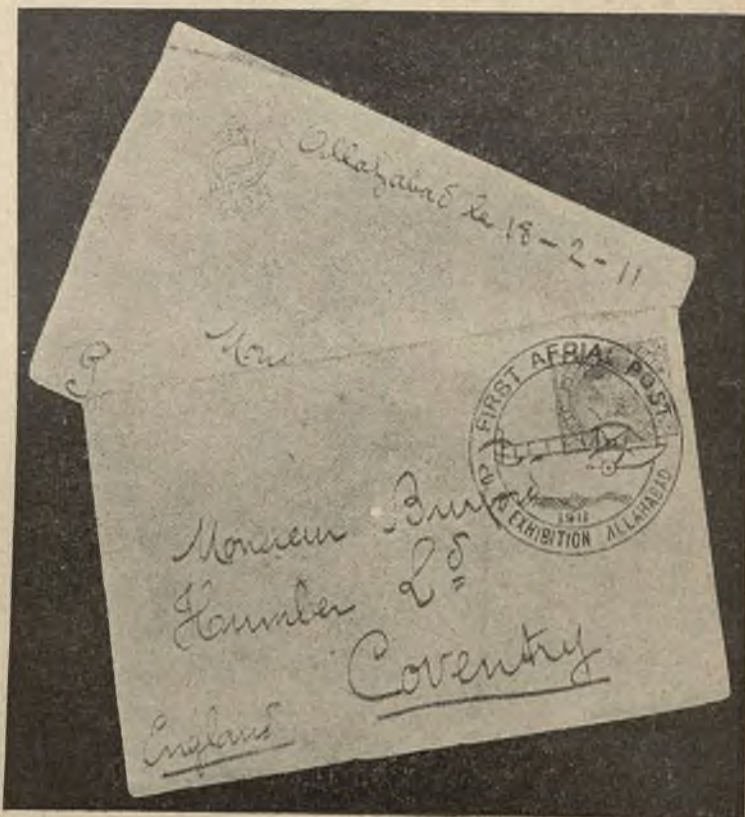 Allahabad le 18-2-11
FIRST AERIAL POST
1911
EXHIBITION ALLAHABAD
Monsieur
Humber Ld
Coventry
England